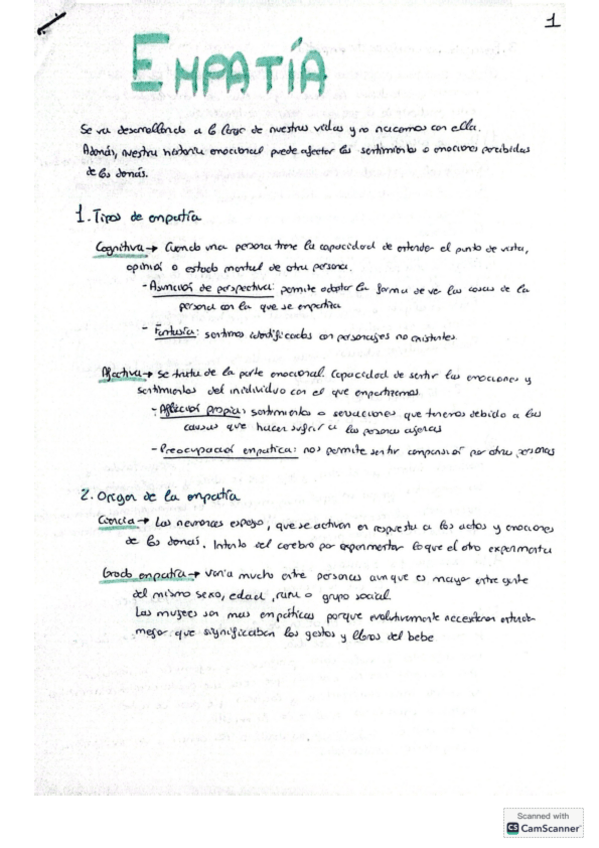 1
EMPATÍA
Se va desarrollando a lo largo de nuestras vidas y no nacemos con ella.
Además, nuestra historia emocional puede afectar los sentimientos o emociones percibidas
de los demás.
1. Tipos de empatía
Cognitiva → Cuando una persona tiene la capacidad de entender el punto de vista,
opinión o estado mental de otra persona.
- Asunción de perspectiva: permite adoptar la forma de ver las cosas de la
persona con la que se empatiza
- Fantasía: sentirnos identificados con personajes no existentes.
Afectiva → se trata de la parte emocional. Capacidad de sentir las emociones y
sentimientos del inidividuo con el que empatizamos.
- Aflicción propia: sentimientos o sensaciones que tenemos debido a las
causas que hacen sufrir a las personas ajenas
- Preocupación empática: nos permite sentir compansión por otras personas
2. Origen de la empatía
Ciencia → Las neuronas espejo, que se activan en respuesta a los actos y emociones
de los demás. Intento del cerebro por experimentar lo que el otro experimenta
Grado empatía → varía mucho entre personas aunque es mayor entre gente
del mismo sexo, edad, raza o grupo social.
Las mujeres son mas empáticas porque evolutivamente necesitaron entender
mejor que significaban los gestos y lloros del bebe
Scanned with
CS CamScanner